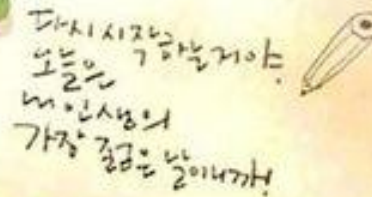 다시 시작하는거야!
오늘은
내 인생의
가장 젊은 날이니까!